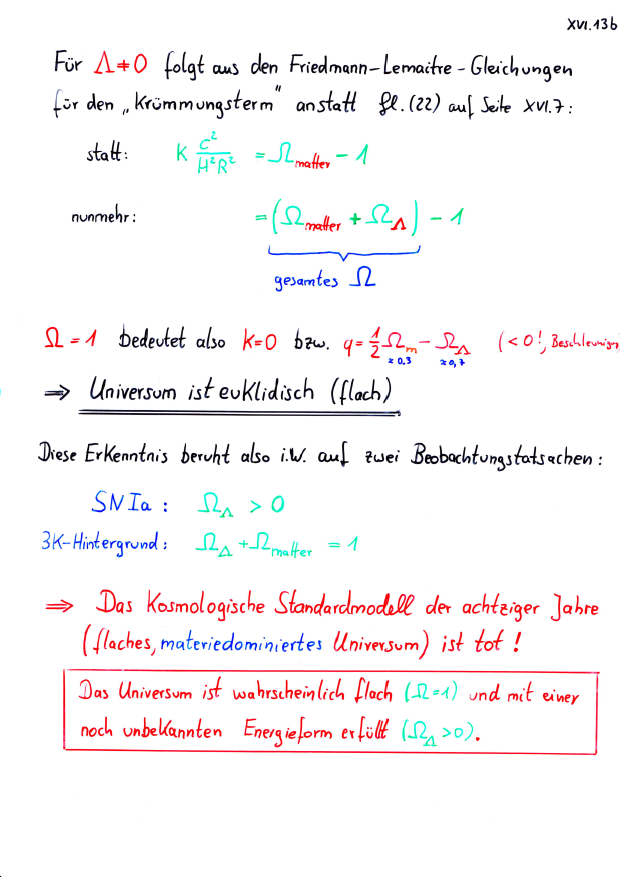 XVI.13b
Für Λ≠0 folgt aus den Friedmann-Lemaitre-Gleichungen
für den „Krümmungsterm" anstatt Gl.(22) auf Seite XVI.7:
statt: K c²/H²R² = Ω_matter - 1
nunmehr: = (Ω_matter + Ω_Λ) - 1
gesamtes Ω
Ω = 1 bedeutet also K=0 bzw. q = 1/2 Ω_m - Ω_Λ (<0!, Beschleunigung
≈0.3 ≈0,7
⇒ Universum ist euklidisch (flach)
Diese Erkenntnis beruht also i.W. auf zwei Beobachtungstatsachen:
SNIa: Ω_Λ > 0
3K-Hintergrund: Ω_Λ + Ω_matter = 1
⇒ Das Kosmologische Standardmodell der achtziger Jahre
(flaches, materiedominiertes Universum) ist tot!
Das Universum ist wahrscheinlich flach (Ω=1) und mit einer
noch unbekannten Energieform erfüllt (Ω_Λ>0).